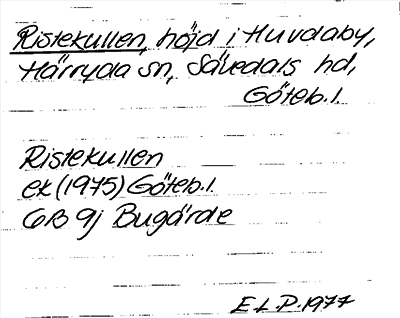 Ristekullen, höjd i Huvdaby,
Härryda sn, Sävedals hd,
Göteb.l.
Ristekullen
ek (1975) Göteb.l.
6B 9j Bugärde
E.L.P. 1977